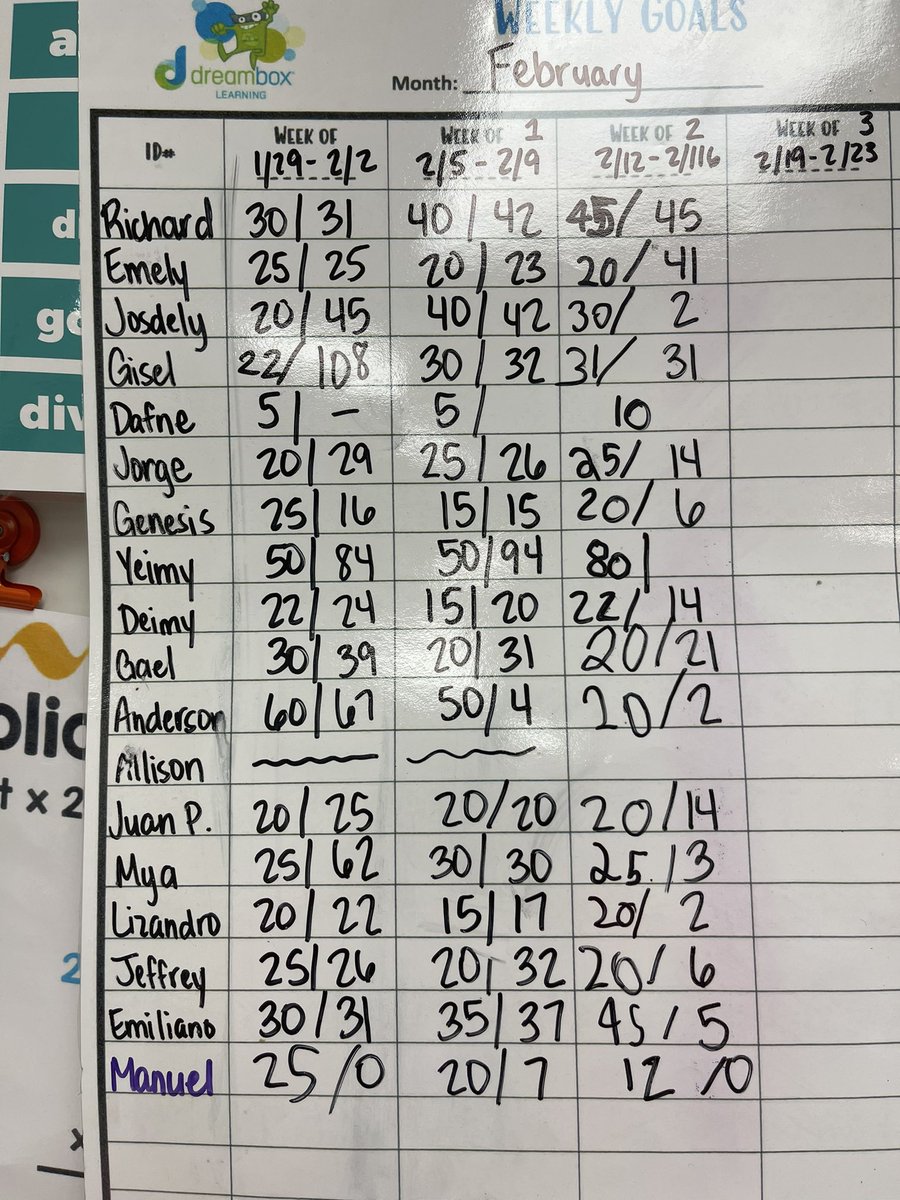 WEEKLY GOALS
dreambox
LEARNING
Month: February
ID# WEEK OF WEEK OF 1 WEEK OF 2 WEEK OF 3
1/29-2/2 2/5-2/9 2/12-2/116 2/19-2/23
Richard 30/31 40/42 45/45
Emely 25/25 20/23 20/41
Josdely 20/45 40/42 30/2
Gisel 22/108 30/32 31/31
Dafne 5/- 5/ 10
Jorge 20/29 25/26 25/14
Genesis 25/16 15/15 20/6
Yeimy 50/84 50/94 80/
Deimy 22/24 15/20 22/14
Gael 30/39 20/31 20/21
Anderson 60/67 50/4 20/2
Allison
Juan P. 20/25 20/20 20/14
Mya 25/62 30/30 25/3
Lizandro 20/22 15/17 20/2
Jeffrey 25/26 20/32 20/6
Emiliano 30/31 35/37 45/5
Manuel 25/0 20/7 12/0
a
d
go
div
olic
t x 2
2
x